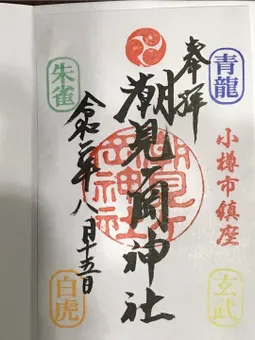 青龍
玄武
小樽市鎮座
奉拝
潮見ヶ岡神社
潮見ヶ
岡神社
令和二年八月十五日
朱雀
白虎